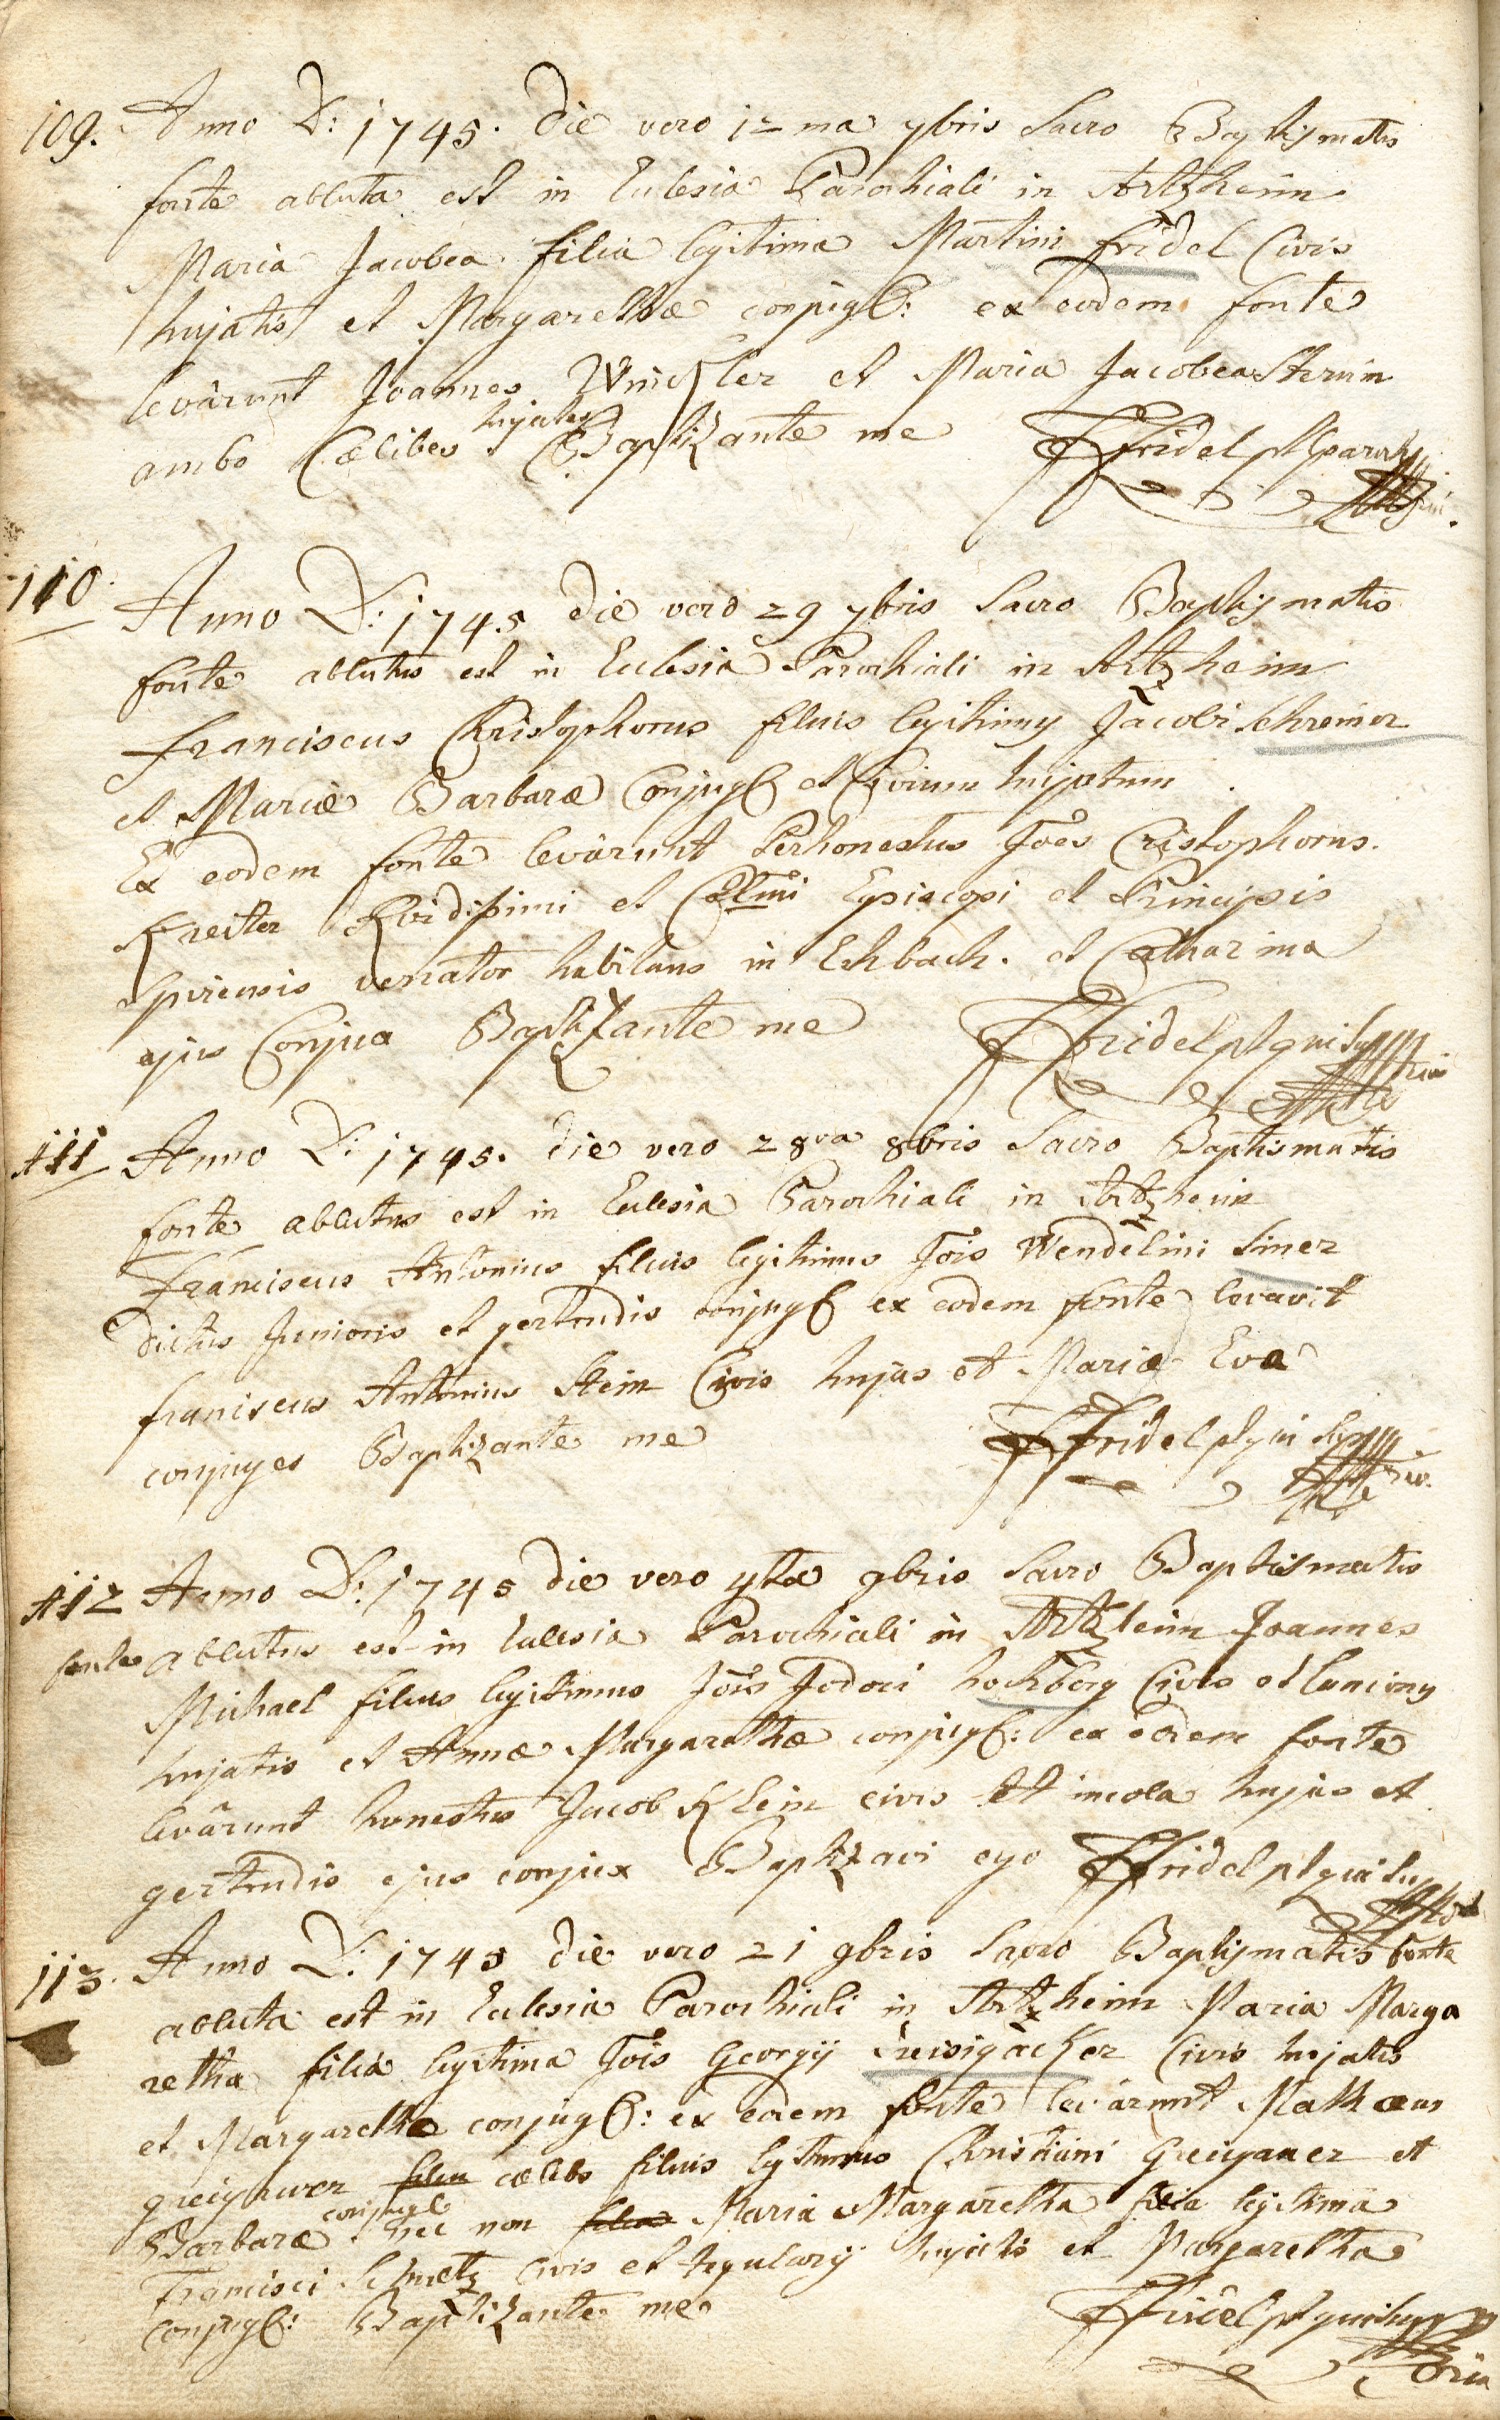 109. Anno D: 1745. die vero 12 ma 7bris Sacro Baptismatis
fonte abluta est in Eclesia Parochiali in Artzheim
Maria Jacobea filia legitima Martini fridel Civis
hujatis et Margarethæ conjug: ex eodem fonte
levârunt Joannes Winckler et Maria Jacobea Sternin
hujates
ambo Cælibes Baptizante me FFridel pl parochi
110. Anno D: 1745 die vero 29 7bris Sacro Baptismatis
fonte ablutus est in Eclesia Parochiali in Artzheim
Franciscus Christophorus filius legitimus Jacobi Schreiner
et Mariæ Barbaræ Conjug et Civium hujatum
Ex eodem fonte levârunt Perhonestus Joes Cristophorus
Kreiter Rvdissimi et Celsmi Episcopi et Principis
Spirensis venator habitans in Eshbach. et Catharina
ejus Conjux Baptizante me FFridel pl qui supra
111 Anno D: 1745. die vero 28va 8bris Sacro Baptismatis
fonte ablutus est in Eclesia Parochiali in Artzheim
Franciscus Antonius filius legitimus Jois Wendelini Siner
dictus Junioris et gertrudis conjug ex eodem fonte levavit
franciscus Antonius Stein Civis hujas et Maria Eva
conjuges Baptizante me FFridel pl qui sup
112 Anno D: 1745 die vero 4ta 9bris Sacro Baptismatis
fonte ablutus est in Eclesia Parochiali in Artzheim Joannes
Michael filius legitimus Jois Jodoci hochberg Civis et
hujatis et Annæ Margarethæ conjug: ex eodem fonte
levârunt honestus Jacob Klein civis et incola hujas et
gertrudis ejus conjux Baptizavi ego FFridel pl qui su
113. Anno D: 1745 die vero 21 9bris Sacro Baptismatis fonte
abluta est in Eclesia Parochiali in Artzheim Maria Marga
retha filia legitima Jois Georgij Treisigäcker Civis hujatis
et Margarethæ conjug: ex eodem fonte levârunt Mathæus
greigauer filiu cælebs filius legitimus Christiani Greigauer et
conjugl
Barbaræ nec non filia Maria Margaretha filia legitima
Francisci Schmetz Civis et tegularij hujatis et Margaretha
conjug: Baptizante me FFridel pl qui sup